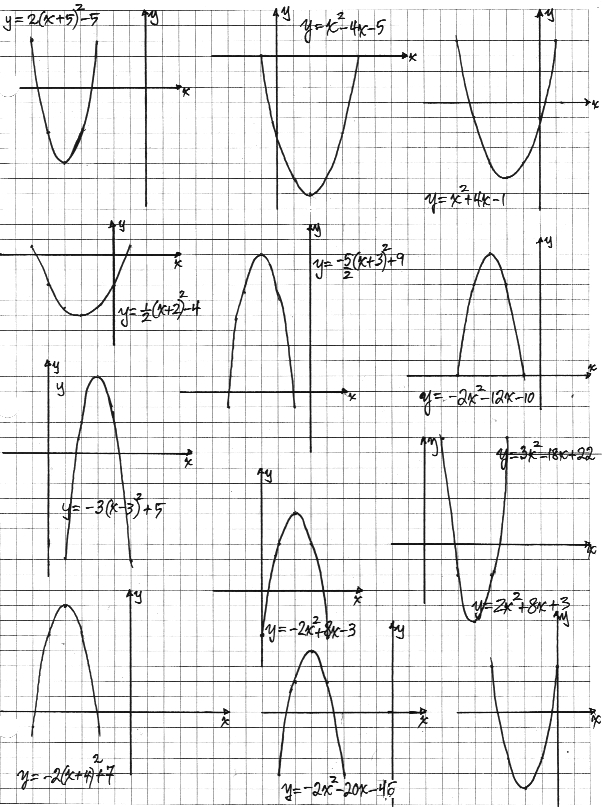 y = 2(x+5)²-5
y
x
y
y = x²-4x-5
x
y
x
y = x²+4x-1
y
x
y = 1/2(x+2)²-4
y
y = -5/2(x+3)²+9
x
y
x
y = -2x²-12x-10
y
y
x
y = -3(x-3)²+5
y
x
y = -2x²+8x-3
y
y = 3x²-18x+22
x
y = 2x²+8x+3
y
x
y = -2(x+4)²+7
y
x
y = -2x²-20x-45
y
x